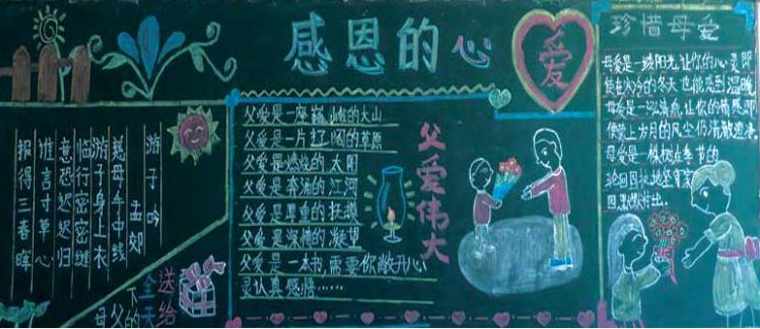 感恩的心
爱
游子吟
孟郊
慈母手中线
游子身上衣
临行密密缝
意恐迟迟归
谁言寸草心
报得三春晖
送给
全天
下的
父
母
父爱伟大
父爱是一座巍峨的大山
父爱是一片辽阔的草原
父爱是燃烧的太阳
父爱是奔涌的江河
父爱是厚重的扶
父爱是深情的凝望
父爱是一本书,需要你敞开心
灵认真感悟……
珍惜母爱
母爱是一缕阳光,让你的心灵即
使在寒冷的冬天也能感到温暖
母爱是一泓清泉,让你的情感即
使蒙上岁月的风尘仍清澈澄净
母爱是一棵树,在季节的
轮回